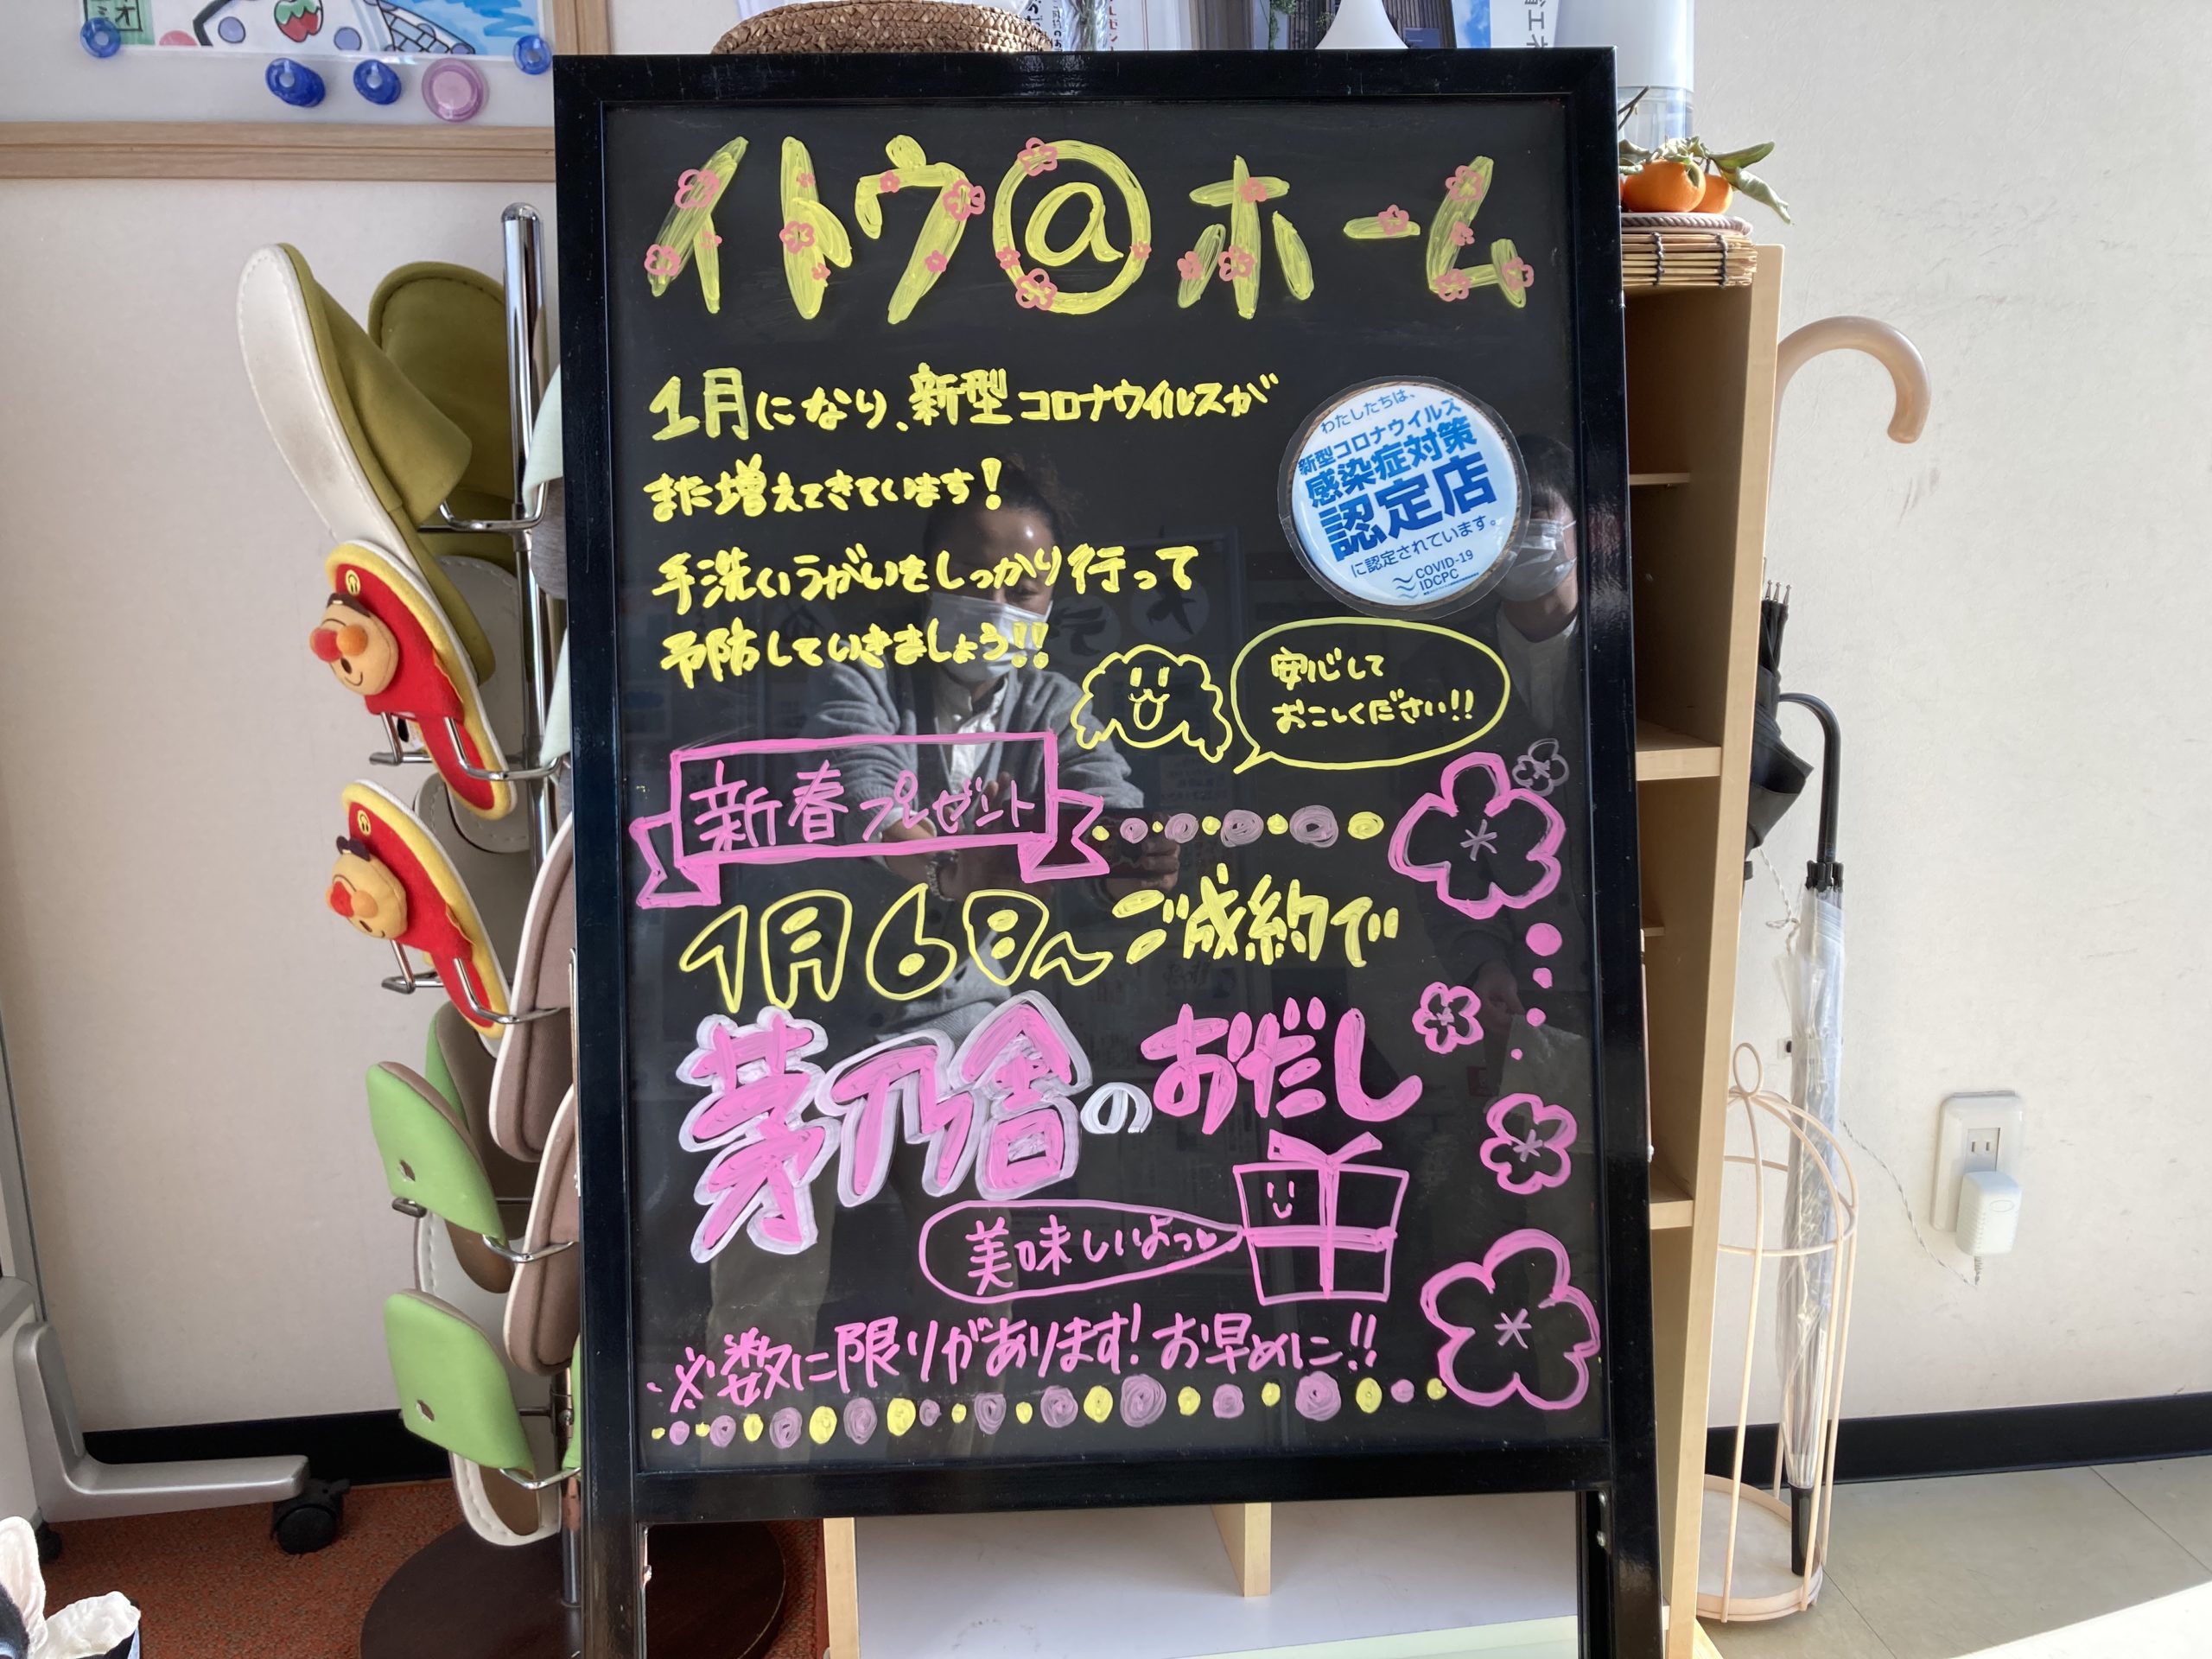 イトウ@ホーム
1月になり、新型コロナウイルスが
また増えてきています!
手洗いうがいをしっかり行って
予防していきましょう!!
わたしたちは、
新型コロナウイルス
感染症対策
認定店
に認定されています。
COVID-19
IDCPC
安心して
おこしください!!
新春プレゼント
1月6日〜ご成約で
茅乃舎のおだし
美味しいよっ♥
※数に限りがあります!お早めに!!